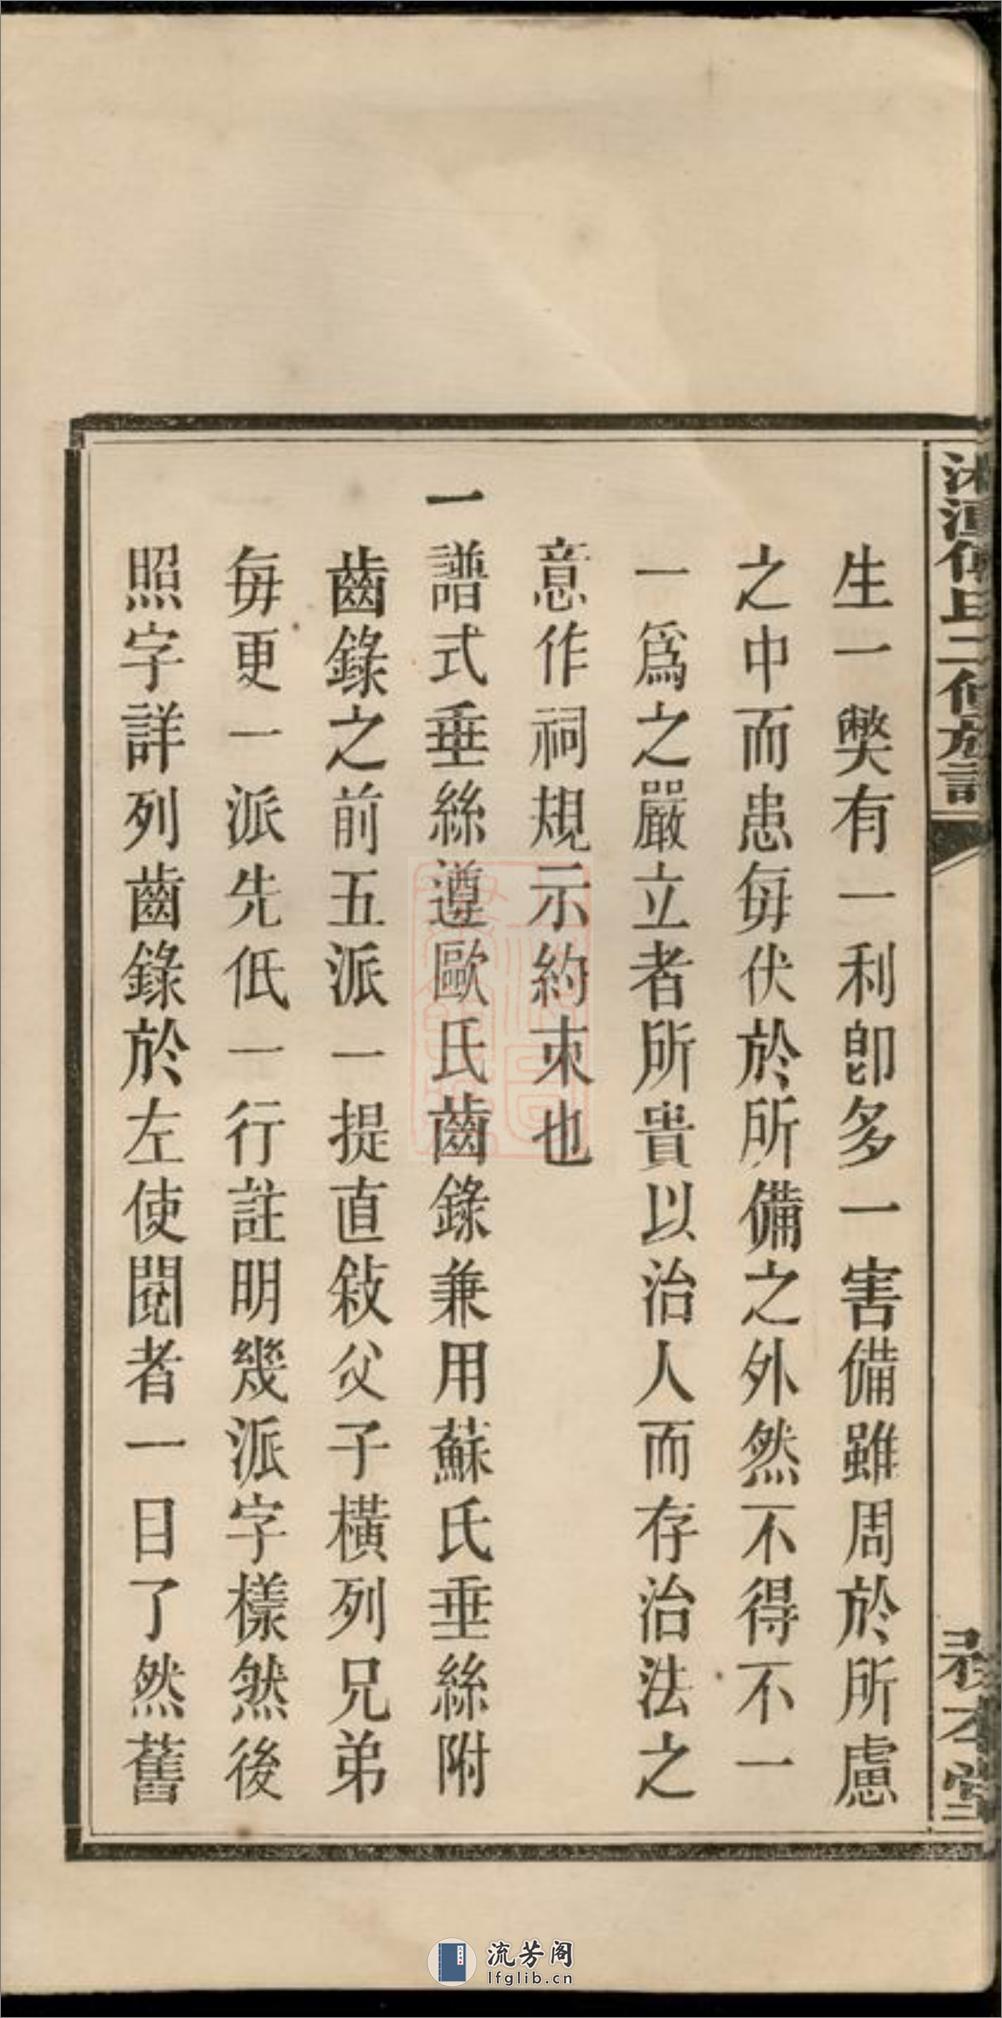 生一獘有一利卽多一害備雖周於所慮
之中而患每伏於所備之外然不得不一
一爲之嚴立者所貴以治人而存治法之
意作祠規示約束也
一譜式垂絲遵歐氏齒錄兼用蘇氏垂絲附
齒錄之前五派一提直敍父子橫列兄弟
每更一派先低一行註明幾派字樣然後
照字詳列齒錄於左使閱者一目了然舊
氏二修族譜
本堂
流芳阁
lfglib.cn